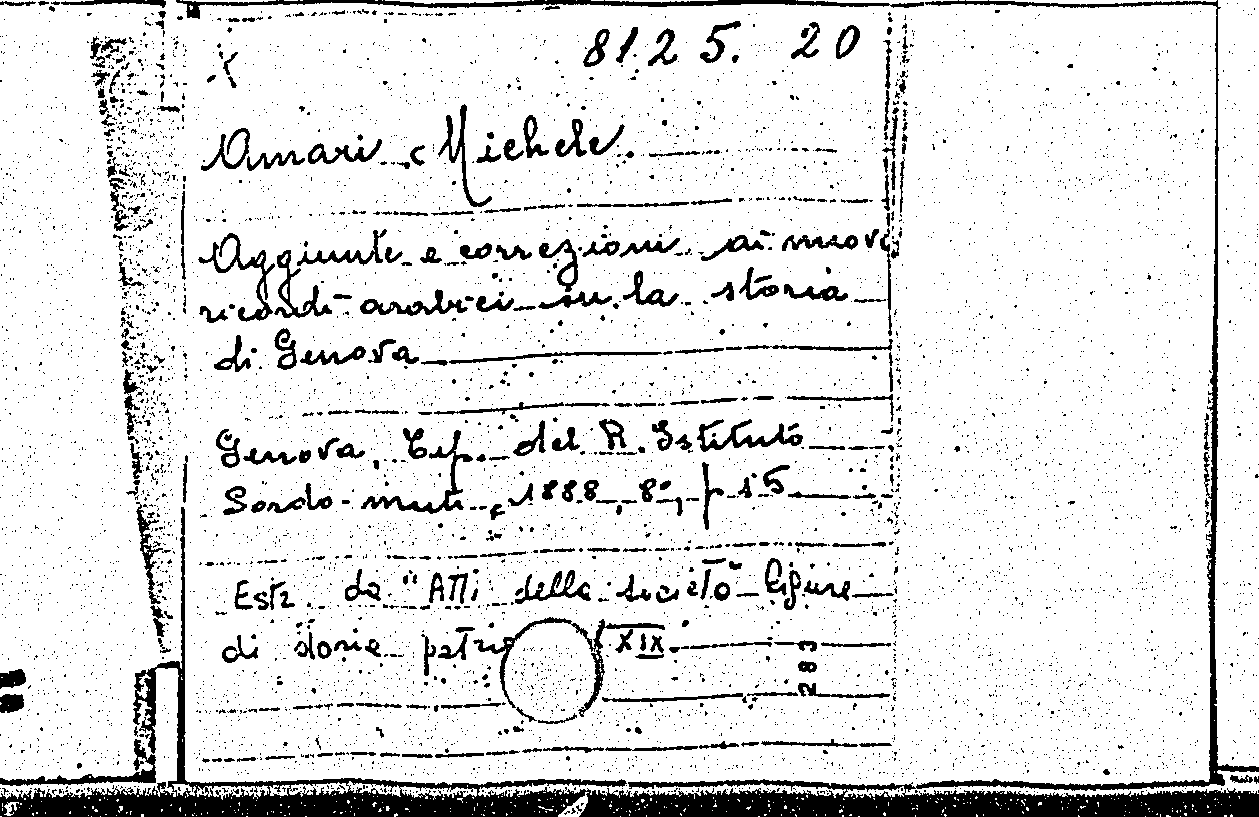 8125. 20
Amari, Michele.
Aggiunte e correzioni ai nuovi
ricordi arabici su la storia
di Genova
Genova, Tip. del R. Istituto
Sordo-muti, 1888, 8º, p 15
Estr. da "Atti della società ligure
di storia patria XIX.
283